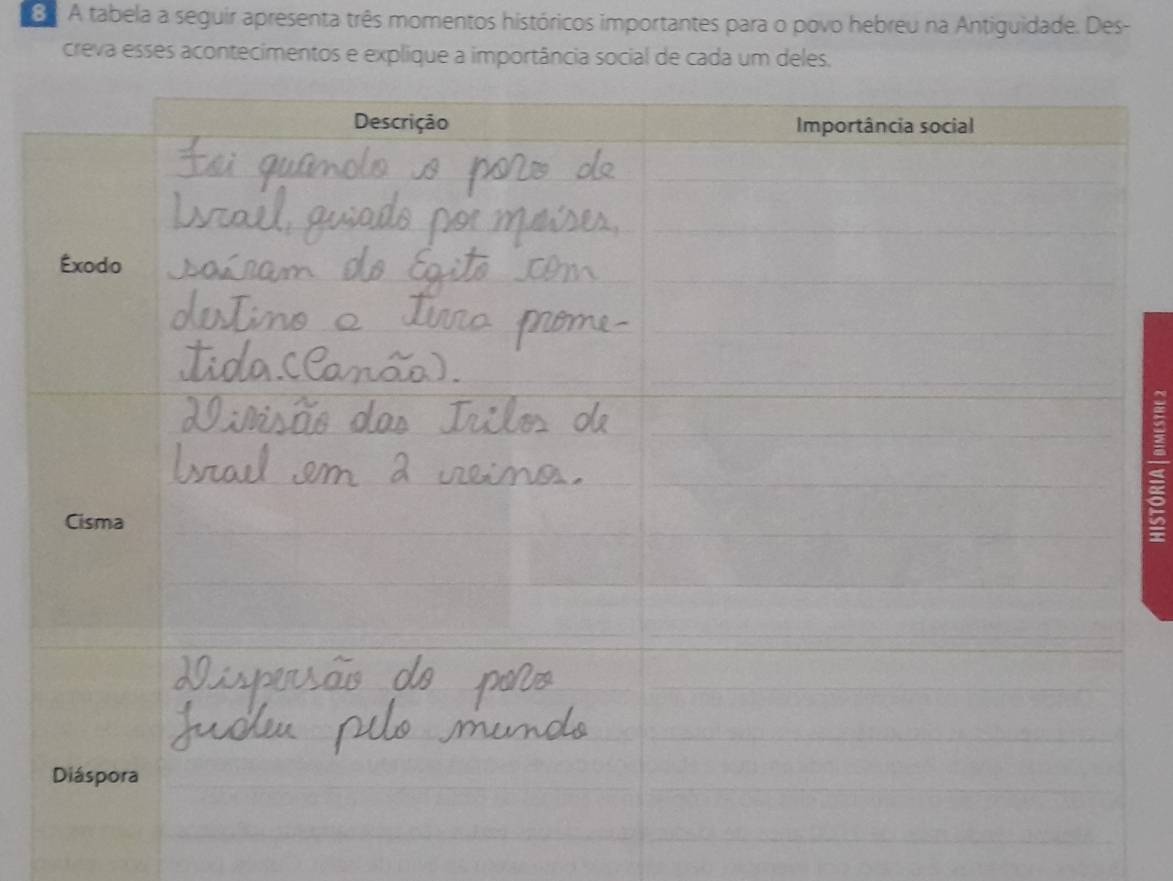 8 A tabela a seguir apresenta três momentos históricos importantes para o povo hebreu na Antiguidade. Des-
creva esses acontecimentos e explique a importância social de cada um deles.
Descrição
Importância social
Êxodo
Foi quando o povo de
Israel, guiado por moises,
saíram do Egito com
destino a terra prome-
tida.(Canãa).
Cisma
Divisão das Tribos de
Israel em 2 reinos.
Diáspora
Dispersão do povo
Judeu pelo mundo
HISTÓRIA | BIMESTRE 2